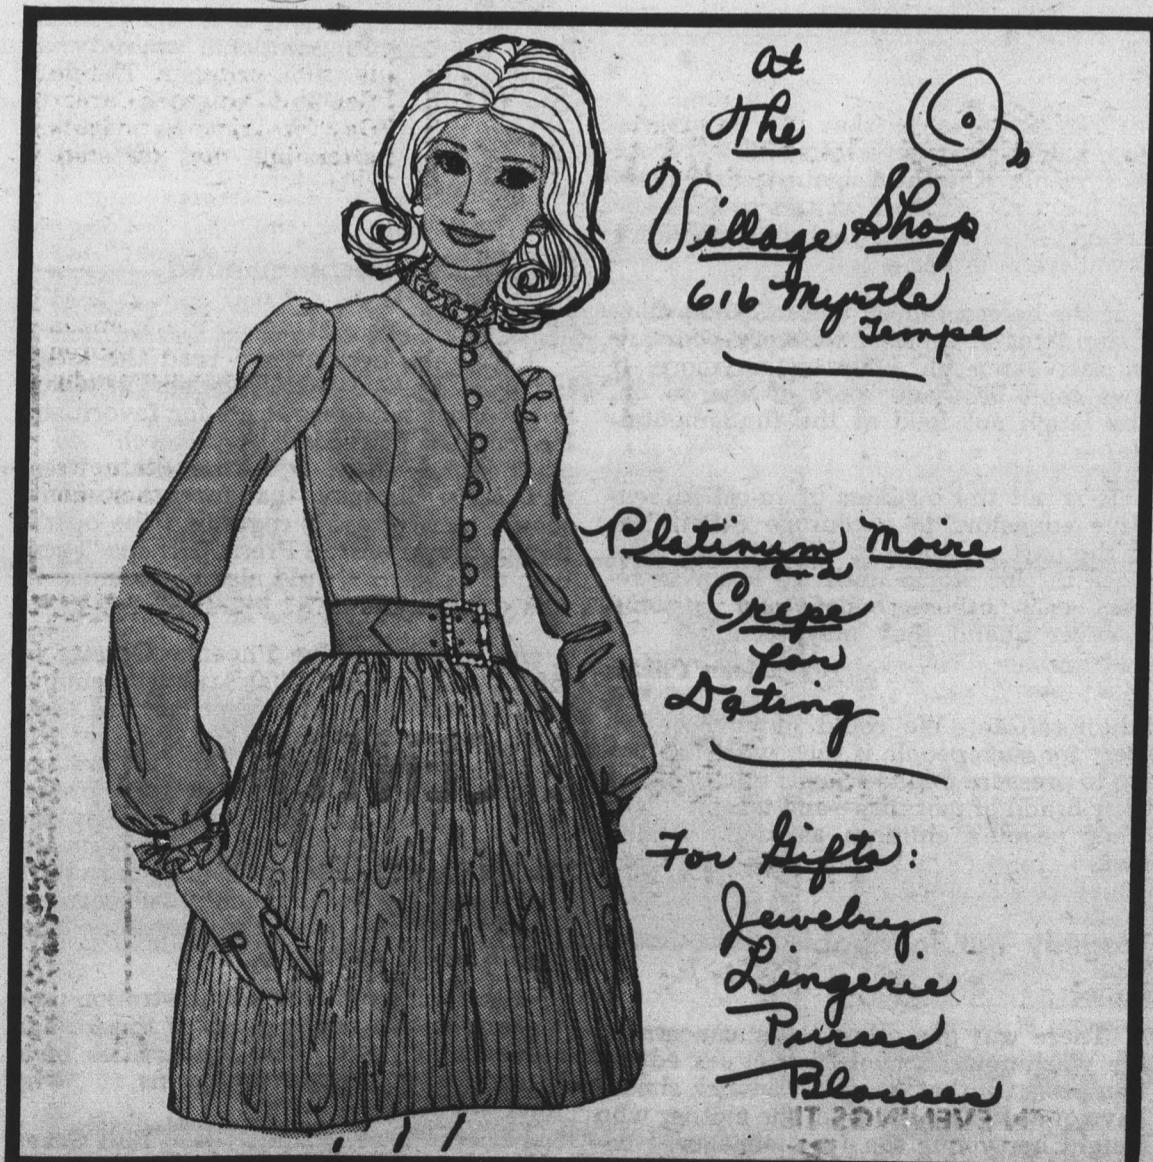 At
The
Village Shop
616 Myrtle
Tempe
Platinum Moire
and
Crepe
for
Dating
For Gifts:
Jewelry
Lingerie
Purses
Blouses
OPEN EVENINGS TIL